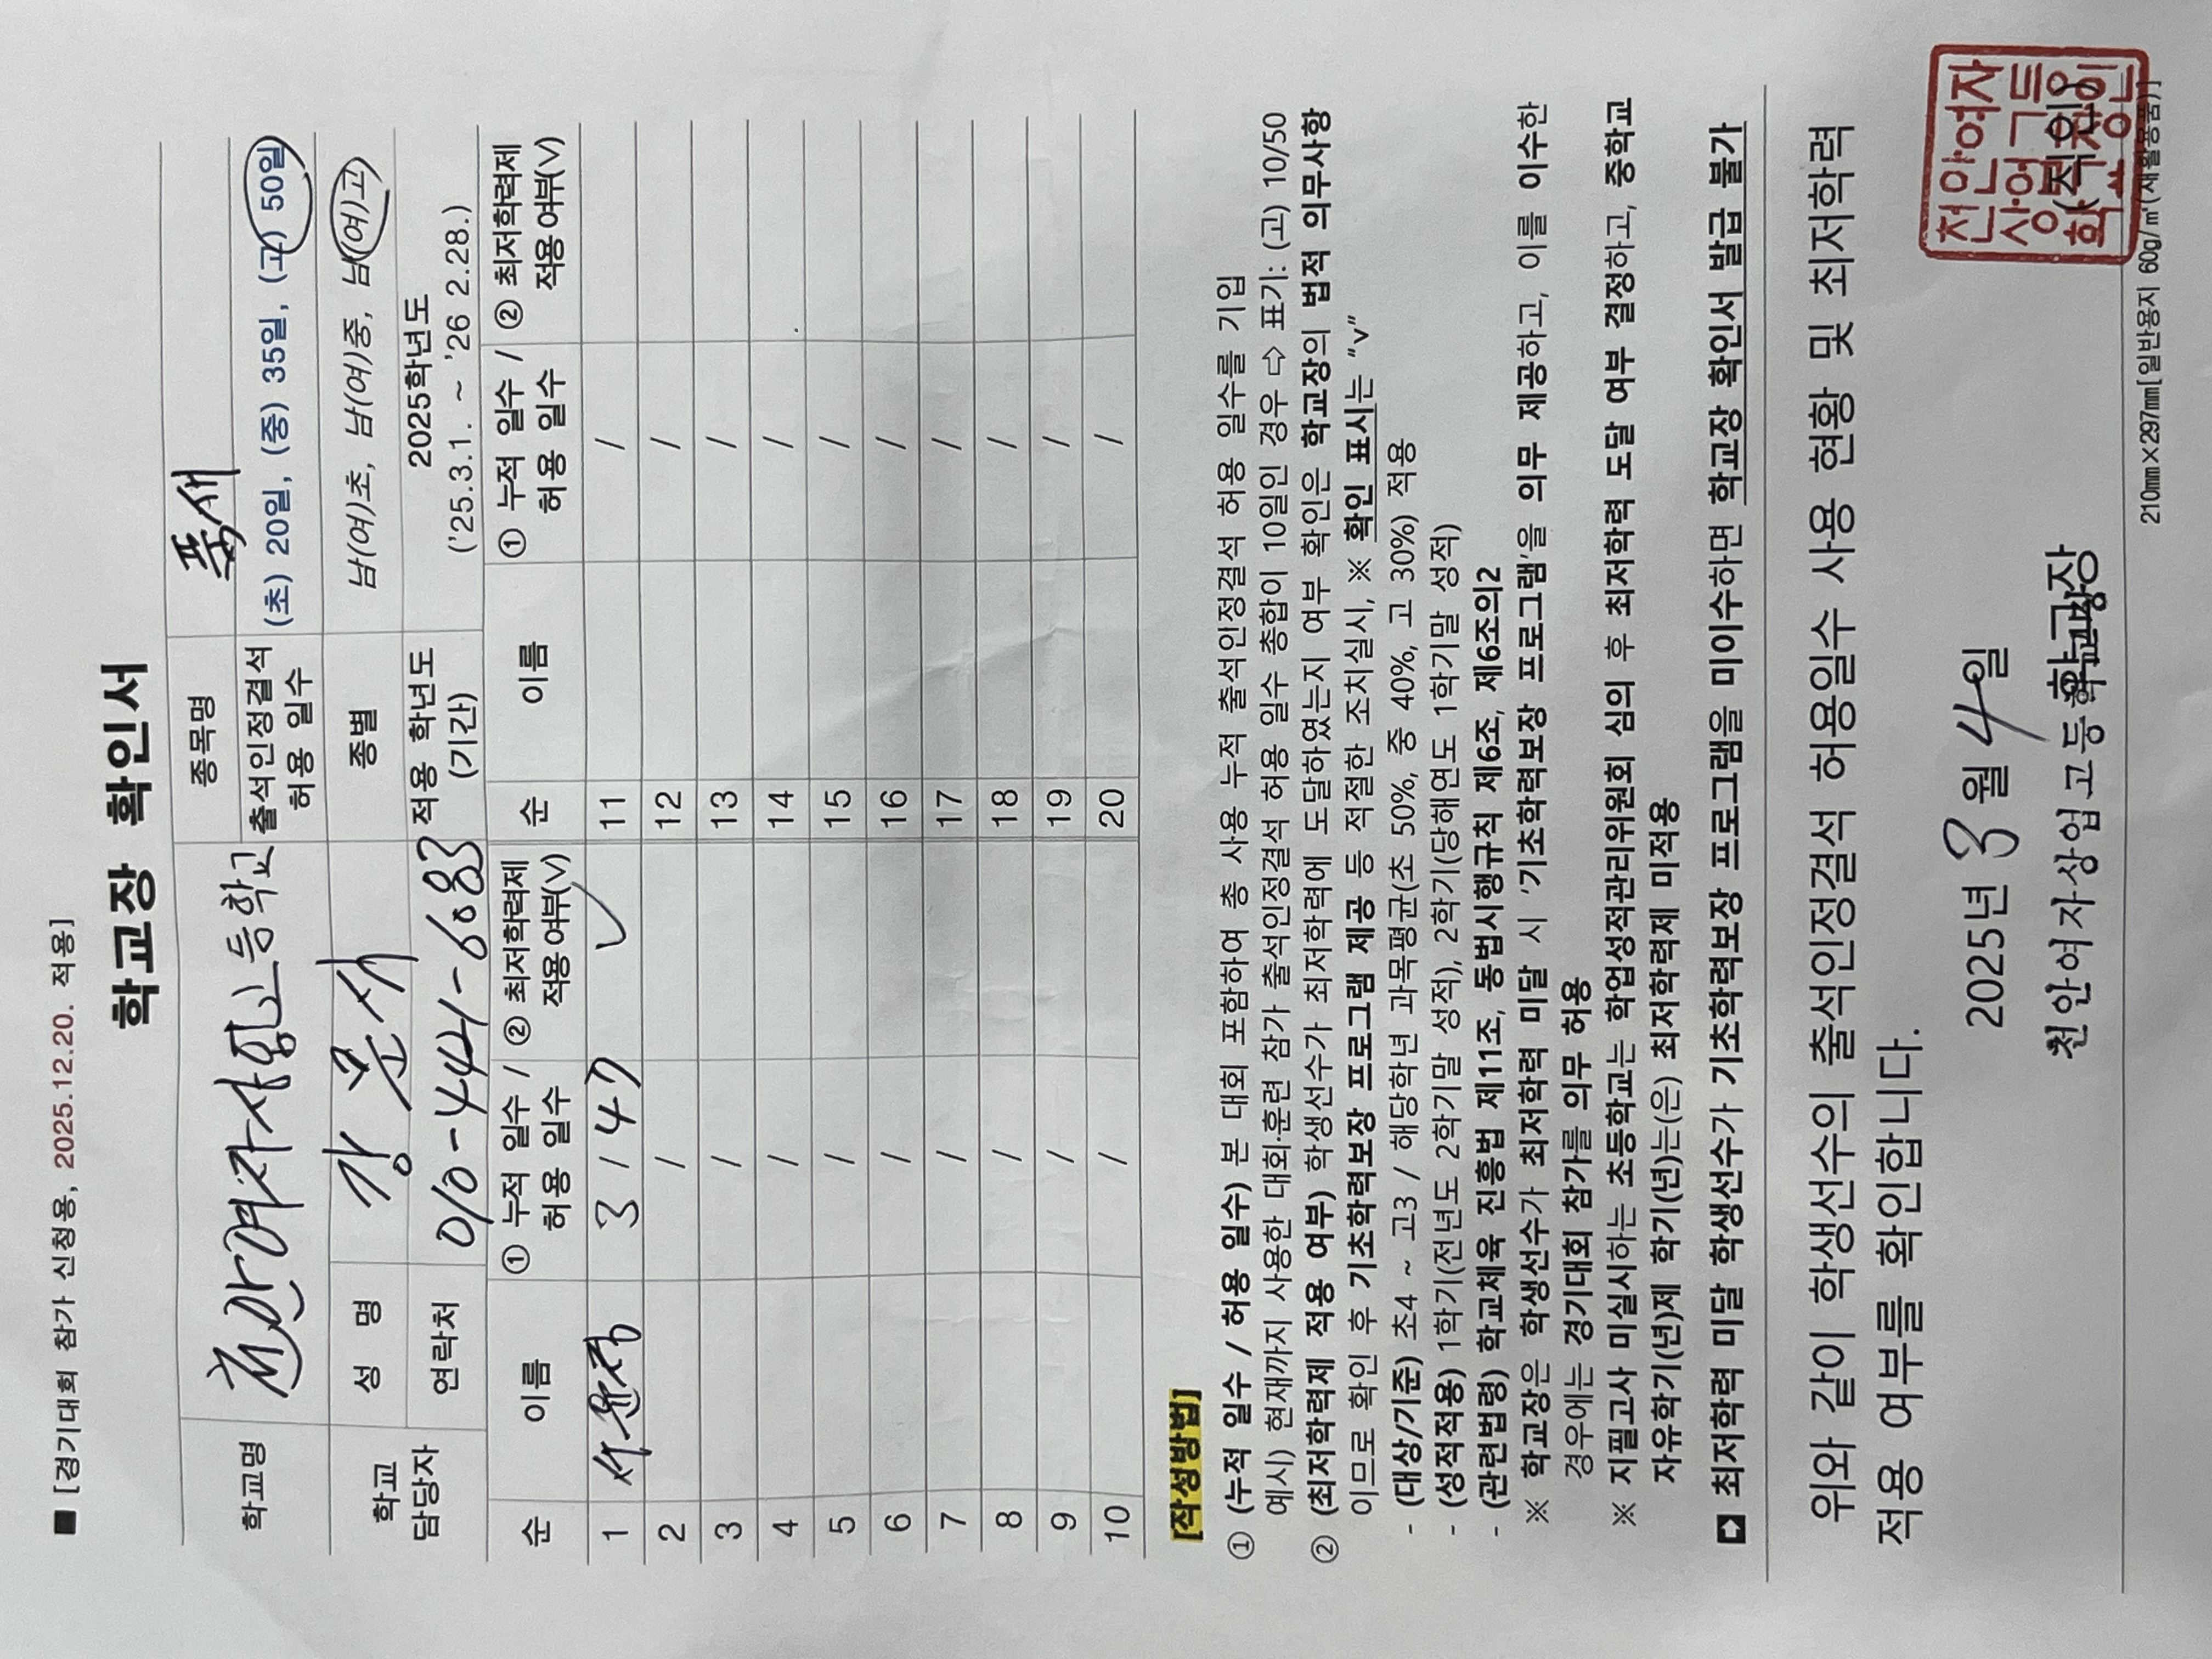 ■ [경기대회 참가 신청용, 2025.12.20. 적용]
학교장 확인서
학교명 천안여자상업고등학교 종목명 폼새
출석인정결석 허용 일수 (초) 20일, (중) 35일, (고) 50일
학교 담당자 성 명 강 문 종별 남(여)초, 남(여)중, 남(여)고
연락처 010-4421-6083 적용 학년도 (기간) 2025학년도 ('25.3.1. ~ '26 2.28.)
순 이름 ① 누적 일수 / 허용 일수 ② 최저학력제 적용여부(V) 순 이름 ① 누적 일수 / 허용 일수 ② 최저학력제 적용여부(V)
1 서윤정 3 / 47 ✓ 11 /
2 / 12 /
3 / 13 /
4 / 14 /
5 / 15 /
6 / 16 /
7 / 17 /
8 / 18 /
9 / 19 /
10 / 20 /
[작성방법]
① (누적 일수 / 허용 일수) 본 대회 포함하여 총 사용 누적 출석인정결석 허용 일수를 기입
예시) 현재까지 사용한 대회·훈련 참가 출석인정결석 허용 일수 총합이 10일인 경우 ⇨ 표기: (고) 10/50
② (최저학력제 적용 여부) 학생선수가 최저학력에 도달하였는지 여부 확인은 학교장의 법적 의무사항
이므로 확인 후 기초학력보장 프로그램 제공 등 적절한 조치실시, ※ 확인 표시는 "v"
- (대상/기준) 초4 ~ 고3 / 해당학년 과목평균(초 50%, 중 40%, 고 30%) 적용
- (성적적용) 1학기(전년도 2학기말 성적), 2학기(당해연도 1학기말 성적)
- (관련법령) 학교체육 진흥법 제11조, 동법시행규칙 제6조, 제6조의2
※ 학교장은 학생선수가 최저학력 미달 시 '기초학력보장 프로그램'을 의무 제공하고, 이를 이수한
경우에는 경기대회 참가를 의무 허용
※ 지필고사 미실시하는 초등학교는 학업성적관리위원회 심의 후 최저학력 도달 여부 결정하고, 중학교
자유학기(년)제 학기(년)는(은) 최저학력제 미적용
➲ 최저학력 미달 학생선수가 기초학력보장 프로그램을 미이수하면 학교장 확인서 발급 불가
위와 같이 학생선수의 출석인정결석 허용일수 사용 현황 및 최저학력
적용 여부를 확인합니다.
2025년 3월 4일
천안여자상업고등학교장 (직인)
천안여자
상업고등
학교장인
210㎜×297㎜[일반용지 60g/㎡(재활용품)]